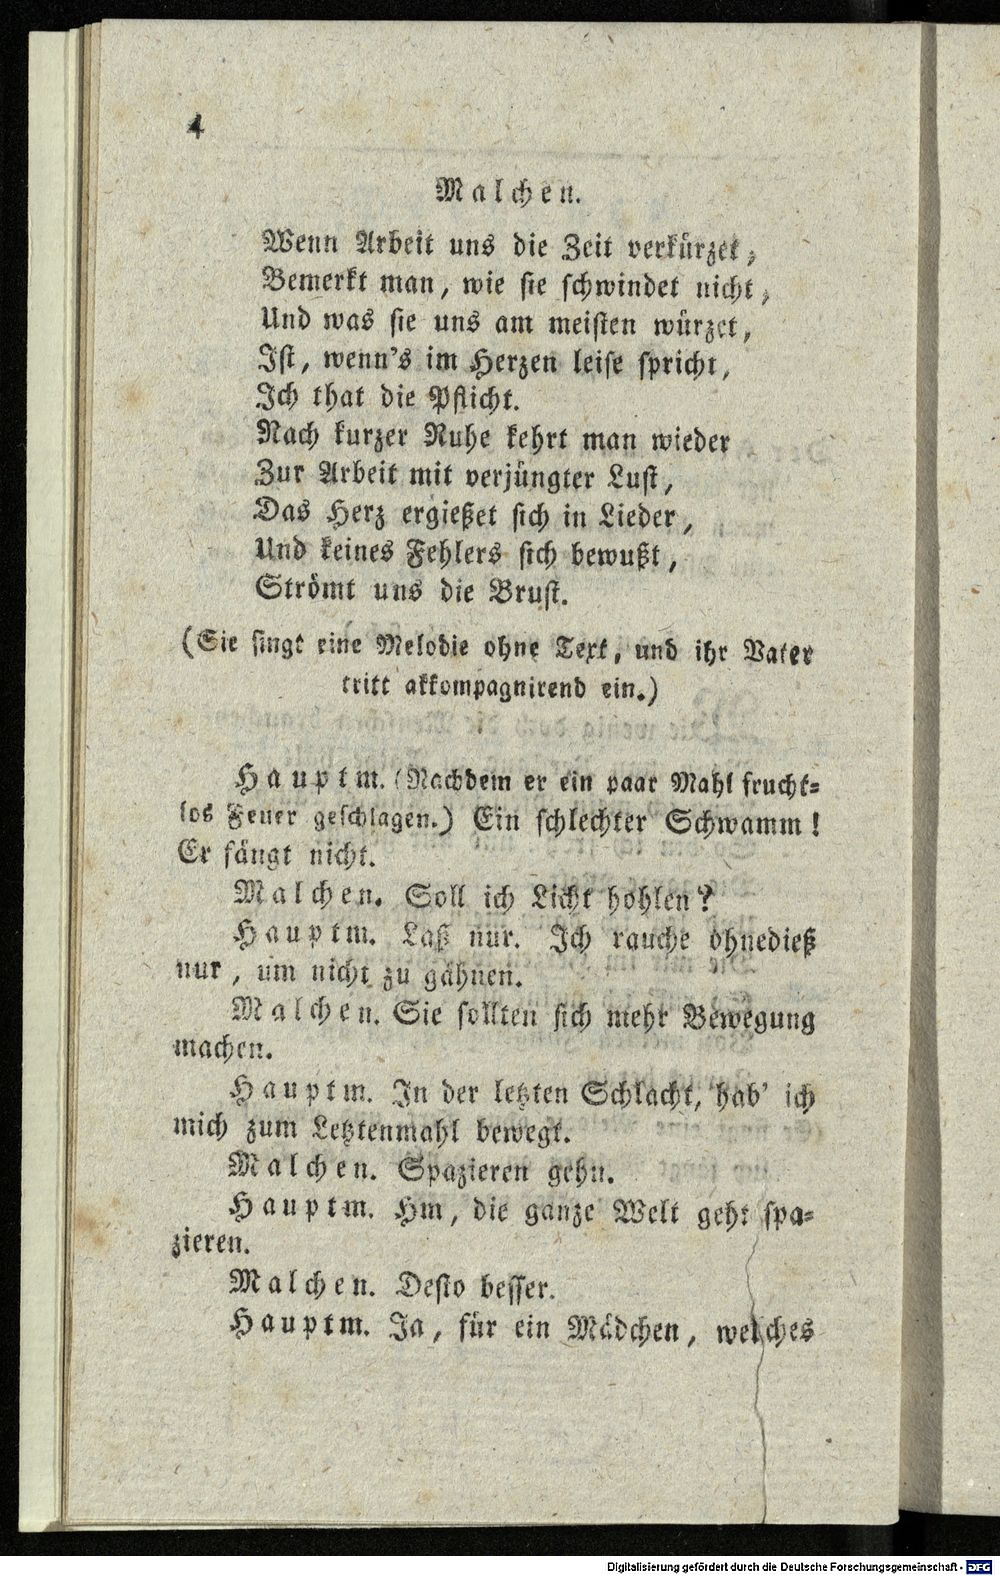 4
Malchen.
Wenn Arbeit uns die Zeit verkürzet,
Bemerkt man, wie sie schwindet nicht,
Und was sie uns am meisten würzet,
Ist, wenn's im Herzen leise spricht,
Ich that die Pflicht.
Nach kurzer Ruhe kehrt man wieder
Zur Arbeit mit verjüngter Lust,
Das Herz ergießet sich in Lieder,
Und keines Fehlers sich bewußt,
Strömt uns die Brust.
(Sie singt eine Melodie ohne Text, und ihr Vater
tritt akkompagnirend ein.)
Hauptm. (Nachdem er ein paar Mahl frucht-
los Feuer geschlagen.) Ein schlechter Schwamm!
Er fängt nicht.
Malchen. Soll ich Licht hohlen?
Hauptm. Laß nur. Ich rauche ohnedieß
nur, um nicht zu gähnen.
Malchen. Sie sollten sich mehr Bewegung
machen.
Hauptm. In der letzten Schlacht, hab' ich
mich zum Letztenmahl bewegt.
Malchen. Spazieren gehn.
Hauptm. Hm, die ganze Welt geht spa-
zieren.
Malchen. Desto besser.
Hauptm. Ja, für ein Mädchen, welches
Digitalisierung gefördert durch die Deutsche Forschungsgemeinschaft - DFG